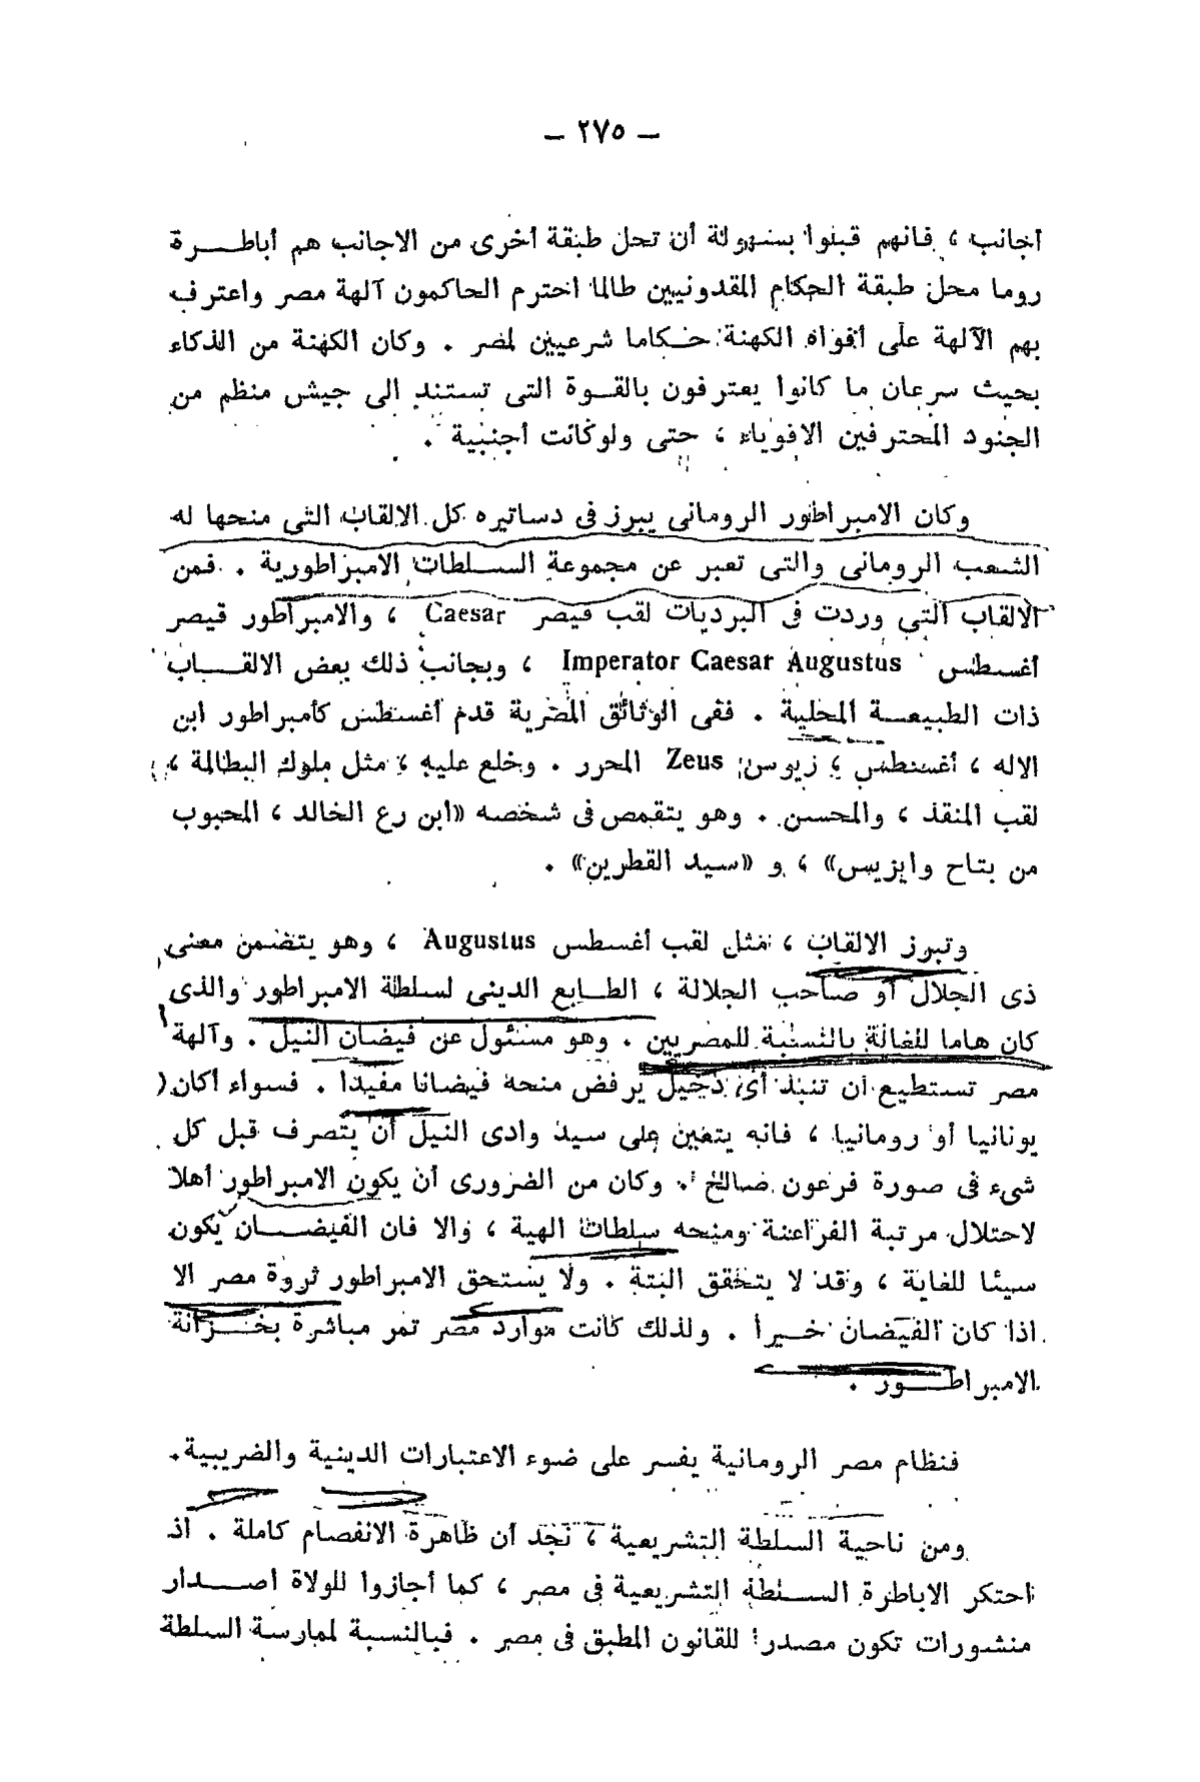 — ٢٧٥ —
أجانب ، فانهم قبلوا بسهولة أن تحل طبقة أخرى من الاجانب هم أباطرة
روما محل طبقة الحكام المقدونيين طالما احترم الحاكمون آلهة مصر واعترف
بهم الآلهة على أفواه الكهنة حكاما شرعيين لمصر . وكان الكهنة من الذكاء
بحيث سرعان ما كانوا يعترفون بالقوة التى تستند الى جيش منظم من
الجنود المحترفين الاقوياء ، حتى ولو كانت أجنبية .
وكان الامبراطور الرومانى يبرز فى دساتيره كل الالقاب التى منحها له
الشعب الرومانى والتى تعبر عن مجموعة السلطات الامبراطورية . فمن
الالقاب التى وردت فى البرديات لقب قيصر Caesar ، والامبراطور قيصر
أغسطس Imperator Caesar Augustus ، وبجانب ذلك بعض الالقاب
ذات الطبيعة المحلية . ففى الوثائق المصرية قدم أغسطس كأمبراطور ابن
الاله ، أغسطس ، زيوس Zeus المحرر . وخلع عليه ، مثل ملوك البطالمة ،
لقب المنقذ ، والمحسن . وهو يتقمص فى شخصه «ابن رع الخالد ، المحبوب
من بتاح وايزيس» ، و «سيد القطرين» .
وتبرز الالقاب ، مثل لقب أغسطس Augustus ، وهو يتضمن معنى
ذى الجلال أو صاحب الجلالة ، الطابع الدينى لسلطة الامبراطور والذى
كان هاما للغاية بالنسبة للمصريين . وهو مسئول عن فيضان النيل . وآلهة
مصر تستطيع أن تنبذ أى دخيل يرفض منحه فيضانا مفيدا . فسواء أكان
يونانيا أو رومانيا ، فانه يتعين على سيد وادى النيل أن يتصرف قبل كل
شىء فى صورة فرعون صالح . وكان من الضرورى أن يكون الامبراطور أهلا
لاحتلال مرتبة الفراعنة ومنحه سلطات الهية ، والا فان الفيضان يكون
سيئا للغاية ، وقد لا يتحقق البتة . ولا يستحق الامبراطور ثروة مصر الا
اذا كان الفيضان خيرا . ولذلك كانت موارد مصر تمر مباشرة بخزانة
الامبراطور .
فنظام مصر الرومانية يفسر على ضوء الاعتبارات الدينية والضريبية .
ومن ناحية السلطة التشريعية ، نجد أن ظاهرة الانفصام كاملة . اذ
احتكر الاباطرة السلطة التشريعية فى مصر ، كما أجازوا للولاة اصدار
منشورات تكون مصدرا للقانون المطبق فى مصر . فبالنسبة لممارسة السلطة